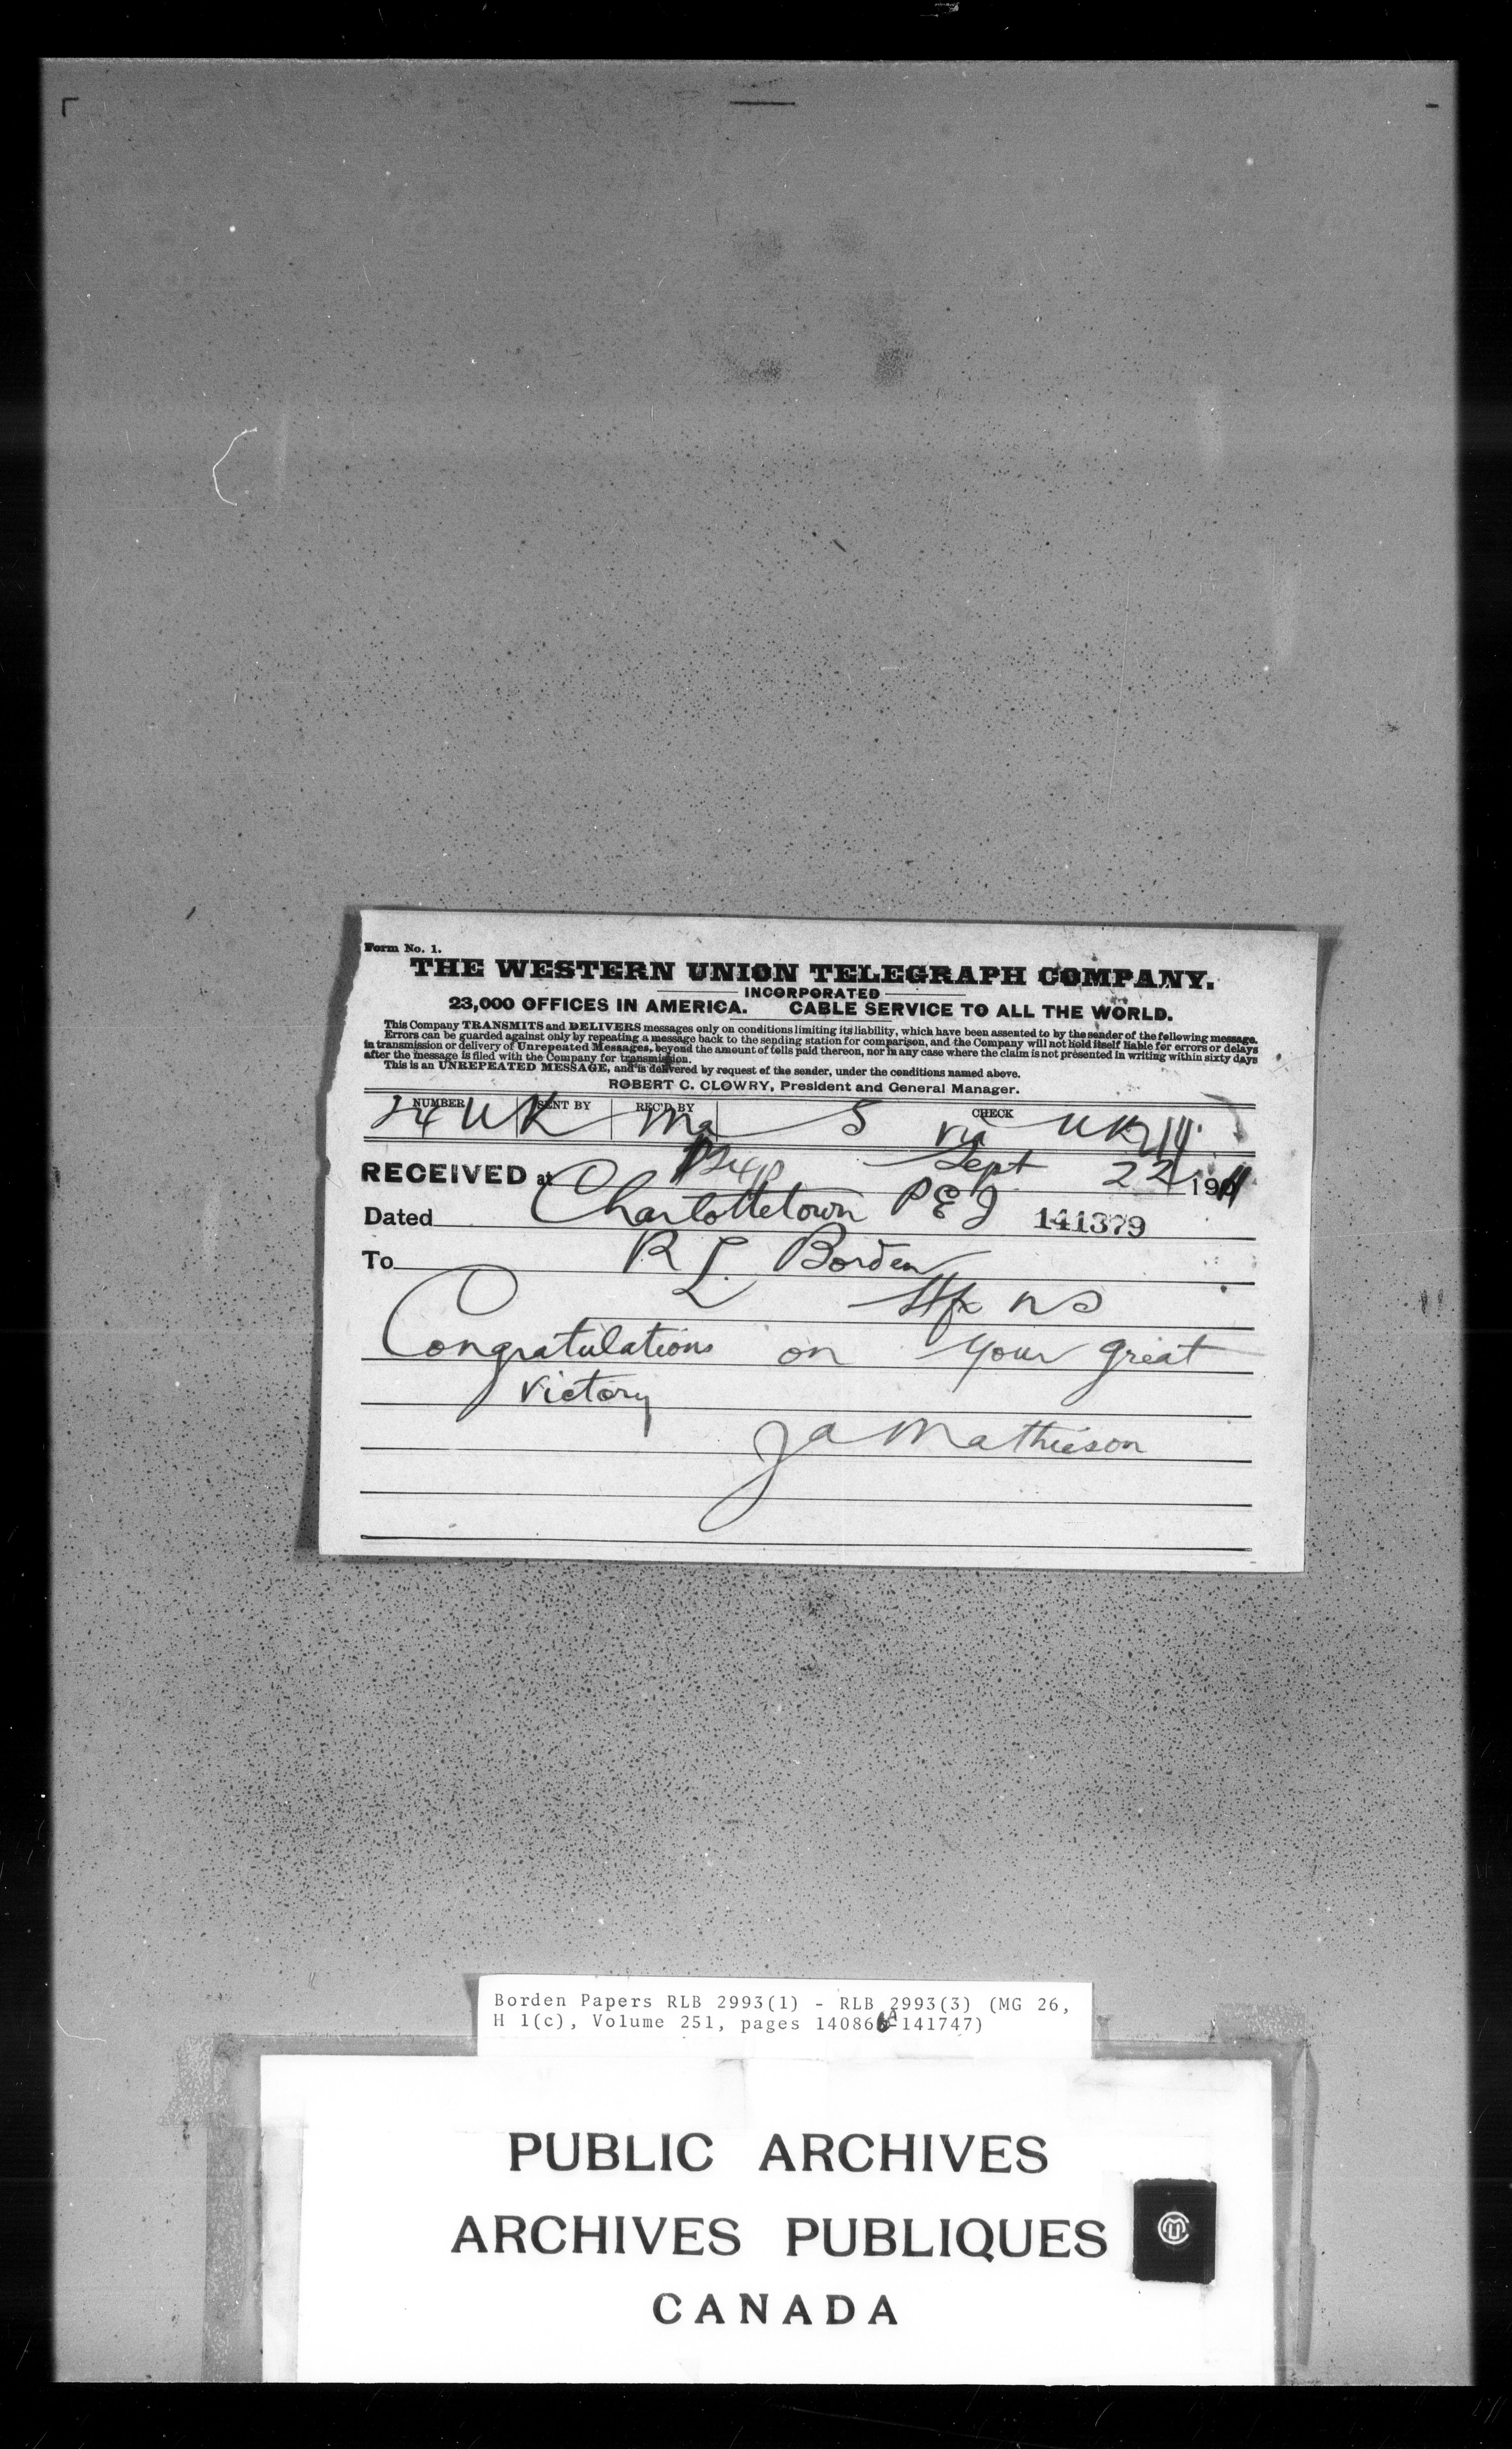 Form No. 1.
THE WESTERN UNION TELEGRAPH COMPANY.
INCORPORATED
23,000 OFFICES IN AMERICA. CABLE SERVICE TO ALL THE WORLD.
This Company TRANSMITS and DELIVERS messages only on conditions limiting its liability, which have been assented to by the sender of the following message.
Errors can be guarded against only by repeating a message back to the sending station for comparison, and the Company will not hold itself liable for errors or delays
in transmission or delivery of Unrepeated Messages, beyond the amount of tolls paid thereon, nor in any case where the claim is not presented in writing within sixty days
after the message is filed with the Company for transmission.
This is an UNREPEATED MESSAGE, and is delivered by request of the sender, under the conditions named above.
ROBERT C. CLOWRY, President and General Manager.
NUMBER SENT BY REC'D BY CHECK
UK Ma 5 via UK
RECEIVED at Sept 22 1911
Dated Charlottetown PEI 141379
To R L Borden
Hfx NS
Congratulations on your great
victory
J A Mathieson
Borden Papers RLB 2993(1) - RLB 2993(3) (MG 26,
H 1(c), Volume 251, pages 140866A-141747)
PUBLIC ARCHIVES
ARCHIVES PUBLIQUES
CANADA